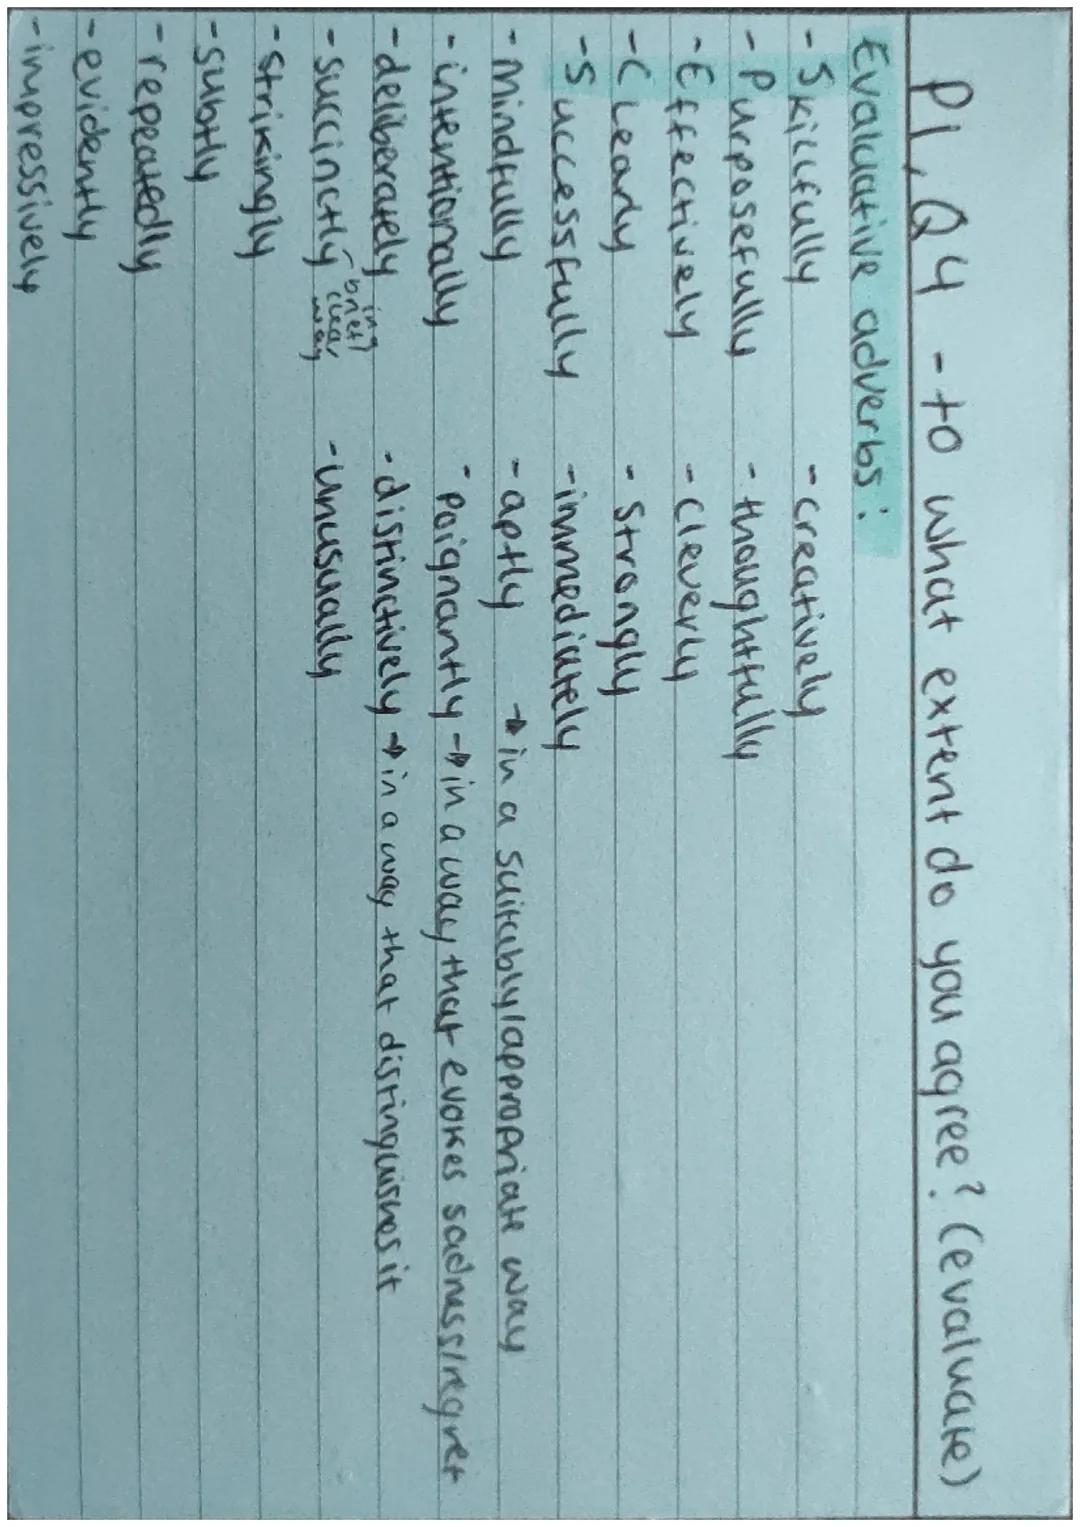 P1, Q4 - to what extent do you agree? (evaluate)
Evaluative adverbs:
- Skilfully - creatively
- Purposefully - thoughtfully
- Effectively - cleverly
- Clearly - strongly
- Successfully - immediately
- Mindfully - aptly → in a suitably/appropriate way
- intentionally - poignantly → in a way that evokes sadness/regret
- deliberately - distinctively → in a way that distinguishes it
- succinctly - in brief, clear way - unusually
- strikingly
- subtly
- repeatedly
- evidently
- impressively